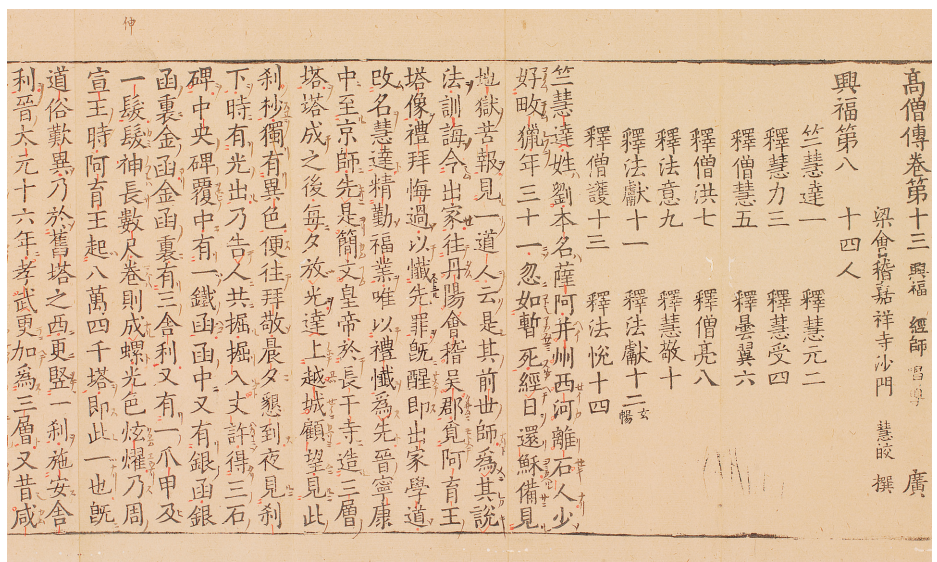 高僧傳卷第十三 興福 經師 唱導 廣
梁會稽嘉祥寺沙門 慧皎 撰
興福第八 十四人
竺慧達一 釋慧元二
釋慧力三 釋慧受四
釋僧慧五 釋曇翼六
釋僧洪七 釋僧亮八
釋法意九 釋慧敬十
釋法獻十一 釋法獻十二玄暢
釋僧護十三 釋法悅十四
竺慧達姓劉本名薩阿并州西河離石人少
好畋獵年三十一忽如暫死經日還穌備見
地獄苦報見一道人云是其前世師為其說
法訓誨令出家往丹陽會稽吳郡覓阿育王
塔像禮拜悔過以懺先罪既醒即出家學道
改名慧達精勤福業唯以禮懺為先晉寧康
中至京師先是簡文皇帝於長干寺造三層
塔塔成之後每夕放光達上越城顧望見此
刹杪獨有異色便往拜敬晨夕懇到夜見刹
下時有光出乃告人共掘掘入丈許得三石
碑中央碑覆中有一鐵函函中又有銀函銀
函裏金函金函裏有三舍利又有一爪甲及
一髮髮神長數尺卷則成螺光色炫燿乃周
宣王時阿育王起八萬四千塔即此一也既
道俗歎異乃於舊塔之西更竪一刹施安舍
利晉太元十六年孝武更加為三層又昔咸
伸